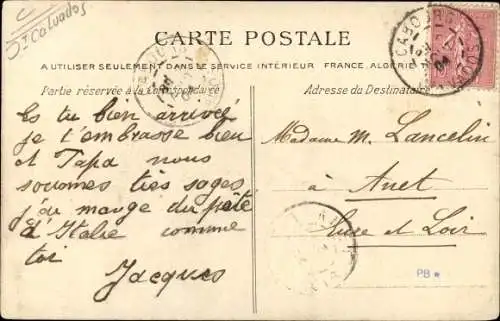 Calvados
CARTE POSTALE
A UTILISER SEULEMENT DANS LE SERVICE INTÉRIEUR FRANCE, ALGÉRIE
Partie réservée à la Correspondance
Adresse du Destinataire
Es tu bien arrivée
je t'embrasse bien
et Papa nous
sommes très sages
j'ai mangé du pâté
d'Italie comme
toi
Jacques
Madame M. Lancelin
à Anet
Eure et Loir
CABOURG
PB